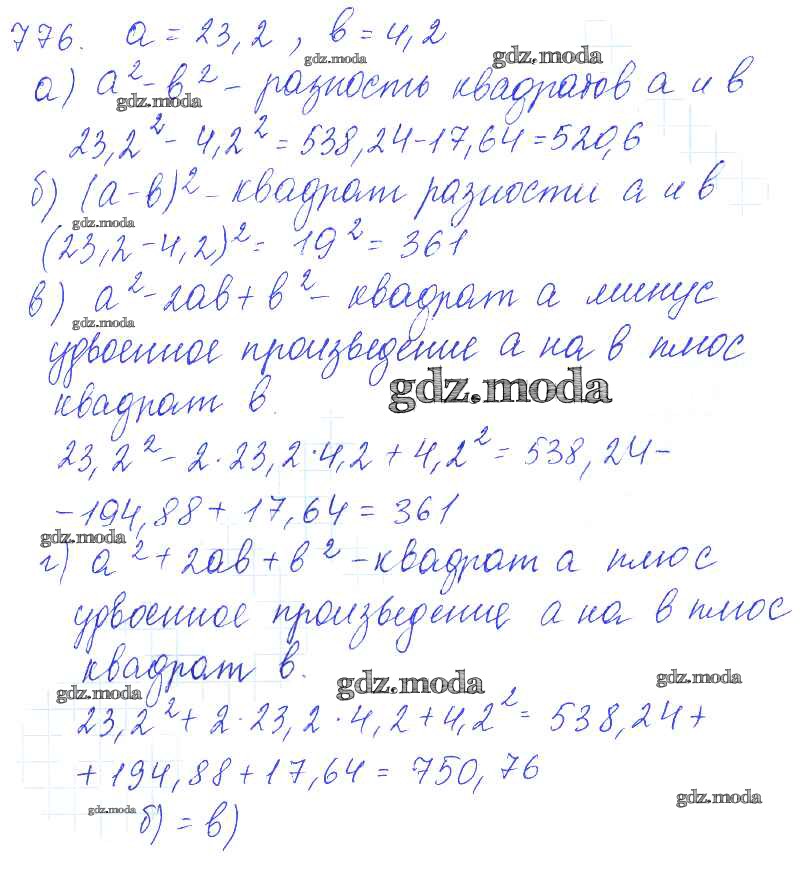 776. а = 23,2 , в = 4,2
gdz.moda
gdz.moda
а) а² - в² - разность квадратов а и в
gdz.moda
23,2² - 4,2² = 538,24 - 17,64 = 520,6
б) (а - в)² - квадрат разности а и в
gdz.moda
(23,2 - 4,2)² = 19² = 361
в) а² - 2ав + в² - квадрат а минус
gdz.moda
удвоенное произведение а на в плюс
gdz.moda
квадрат в.
23,2² - 2·23,2·4,2 + 4,2² = 538,24 -
- 194,88 + 17,64 = 361
gdz.moda
г) а² + 2ав + в² - квадрат а плюс
удвоенное произведение а на в плюс
квадрат в.
gdz.moda
gdz.moda
gdz.moda
23,2² + 2·23,2·4,2 + 4,2² = 538,24 +
+ 194,88 + 17,64 = 750,76
gdz.moda
gdz.moda
б) = в)